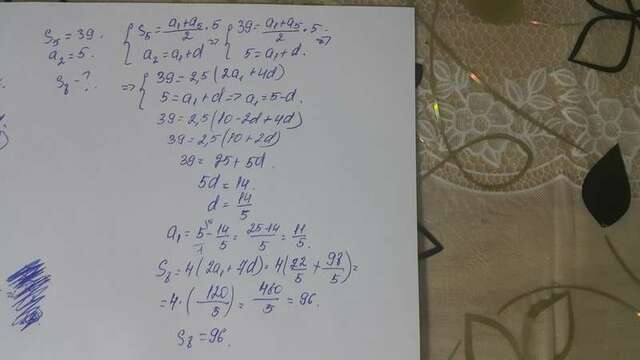 S₅ = 39.
a₂ = 5.
S₈ - ?
{ S₅ = (a₁+a₅)/2 · 5 => { 39 = (a₁+a₅)/2 · 5 =>
a₂ = a₁+d 5 = a₁+d.
=> { 39 = 2,5(2a₁+4d)
5 = a₁+d => a₁ = 5-d.
39 = 2,5(10-2d+4d)
39 = 2,5(10+2d)
39 = 25+5d.
5d = 14.
d = 14/5
a₁ = 5 - 14/5 = (25-14)/5 = 11/5.
S₈ = 4(2a₁+7d) = 4(22/5 + 98/5) =
= 4·(120/5) = 480/5 = 96.
S₈ = 96.